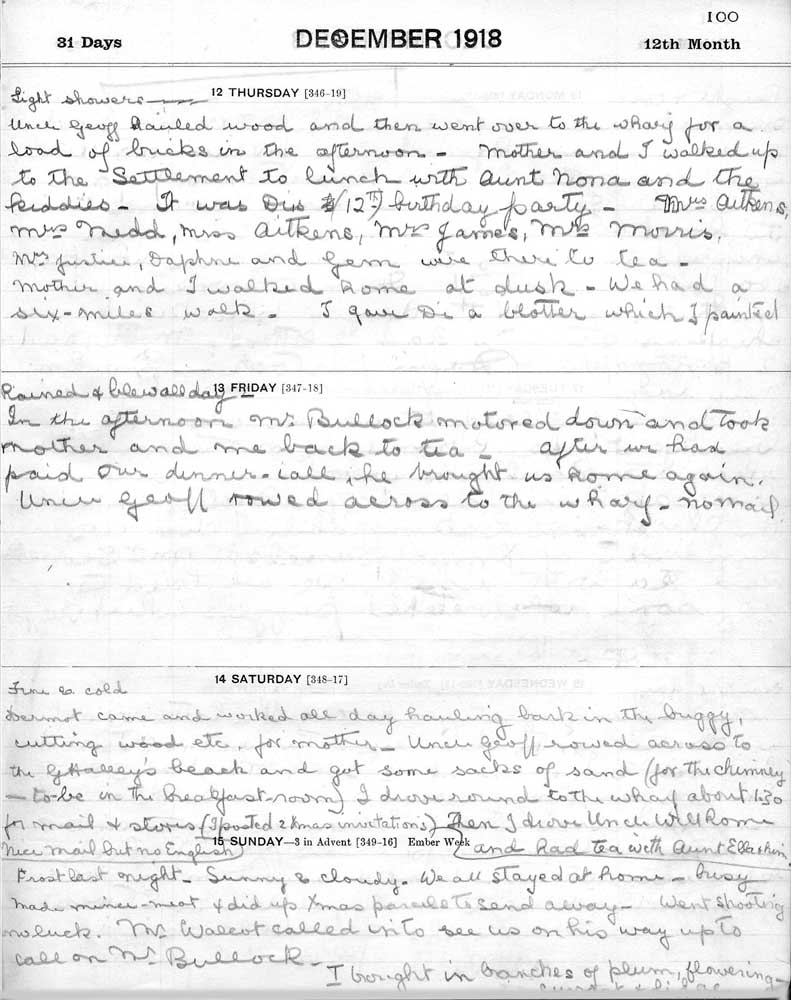 100
31 Days DECEMBER 1918 12th Month
Light showers — 12 THURSDAY [346-19]
Uncle Geoff hauled wood and then went over to the wharf for a
load of bricks in the afternoon - Mother and I walked up
to the Settlement to lunch with Aunt Nona and the
kiddies - It was Di's (12th) birthday party - Mrs Aitkens,
Mrs Nedd, Miss Aitkens, Mrs James, Mrs Morris,
Mrs Justice, Daphne and Gem were there to tea -
Mother and I walked home at dusk - We had a
six-miles walk - I gave Di a blotter which I painted
Rained & blew all day - 13 FRIDAY [347-18]
In the afternoon Mr Bullock motored down and took
mother and me back to tea - After we had
paid our dinner-call, he brought us home again.
Uncle Geoff rowed across to the wharf - no mail
14 SATURDAY [348-17]
Fine & cold
Dermot came and worked all day hauling bark in the buggy,
cutting wood etc, for mother - Uncle Geoff rowed across to
the Halley's beach and got some sacks of sand (for the chimney
- to-be in the breakfast-room) I drove round to the wharf about 1.30
for mail & stores (I posted 2 Xmas invitations) Then I drove Uncle Will home
Nice mail but no English) 15 SUNDAY—3 in Advent [349-16] Ember Week (and had tea with Aunt Ella & him
Frost last night - Sunny & cloudy. We all stayed at home - busy
made mince-meat & did up Xmas parcels to send away - Went shooting
no luck. Mr Walcot called in to see us on his way up to
call on Mr Bullock -
I brought in branches of plum, flowering-
currant & lilac